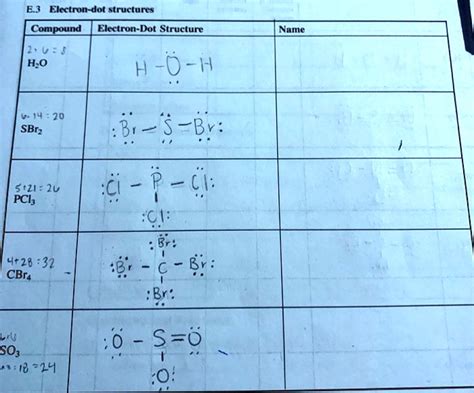 E.3 Electron-dot structures
Compound Electron-Dot Structure Name
2+6=8
H₂O
H - Ö - H
6+14:20
SBr₂
:Br - S - Br:
5+21=26
PCl₃
:Cl - P - Cl:
:Cl:
4+28:32
CBr₄
:Br:
:Br - C - Br:
:Br:
SO₃
:18=24
:O - S = O
:O: